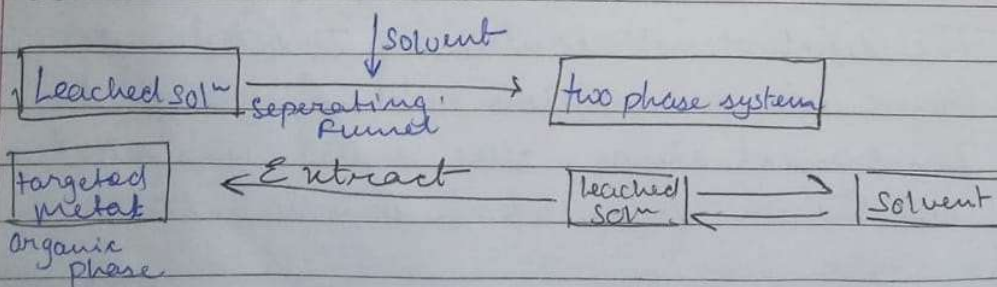 solvent
Leached solⁿ
seperating
funnel
two phase system
targeted
metal
Extract
leached
solⁿ.
solvent
organic
phase